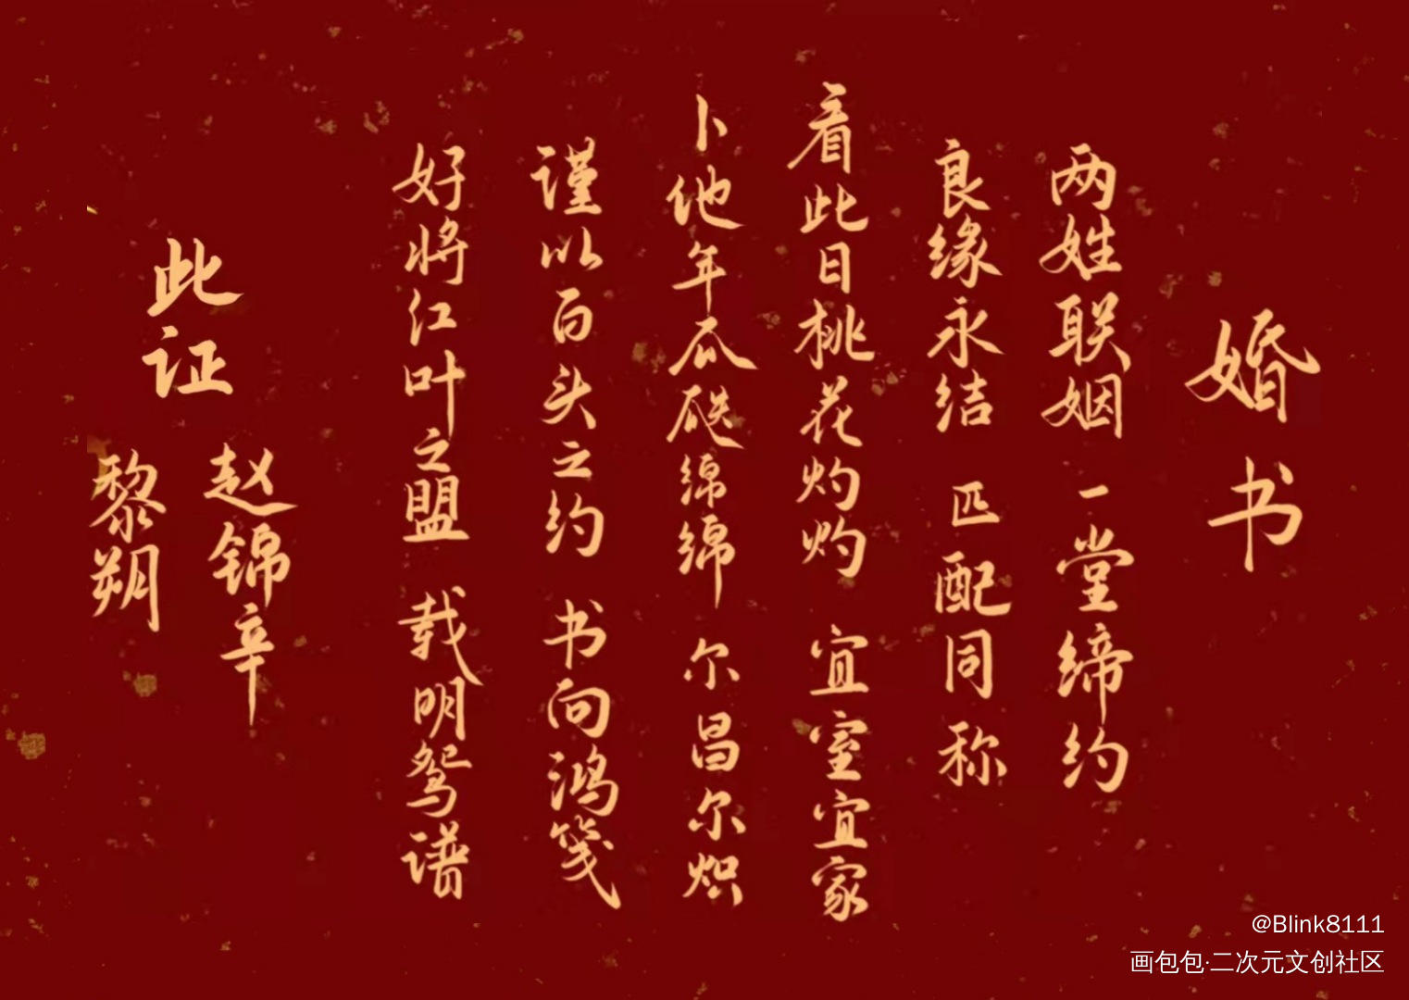 婚书
两姓联姻 一堂缔约
良缘永结 匹配同称
看此日桃花灼灼 宜室宜家
卜他年瓜瓞绵绵 尔昌尔炽
谨以白头之约 书向鸿笺
好将红叶之盟 载明鸳谱
此证
赵锦辛
黎朔
@Blink8111
画包包·二次元文创社区